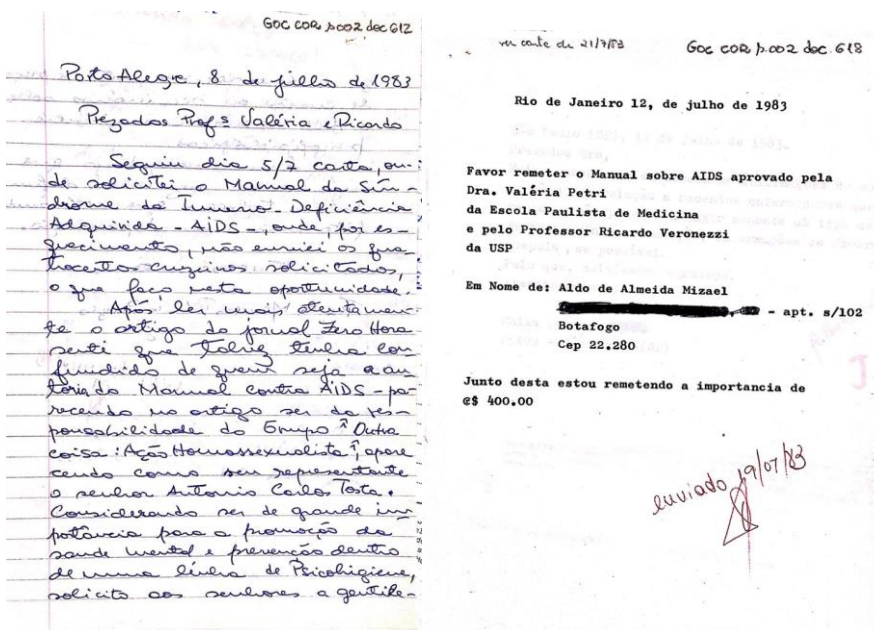 GOC COR p002 dec 612
Porto Alegre, 8 de julho de 1983
Prezados Prof.s Valéria e Ricardo
Seguiu dia 5/7 carta, on-
de solicitei o Manual da Sín-
drome da Imuno-Deficiência
Adquirida - AIDS -, onde por es-
quecimento, não enviei os qua-
trocentos cruzeiros solicitados,
o que faço nesta oportunidade.
Após ler mais atentamen-
te o artigo do jornal Zero Hora
senti que talvez tenha con-
fundido de quem seja a au-
toria do Manual contra AIDS - pa-
recendo no artigo ser da res-
ponsabilidade do Grupo "Outra
coisa: Ação Homossexualista", apare
cendo como seu representante
o senhor Antonio Carlos Tosta.
Considerando ser de grande im-
potância para a promoção da
saude mental e prevenção dentro
de numa linha de Psicohigiene,
solicito aos senhores a gentile-
ver carta de 21/7/83
GOC COR p.002 dec. 618
Rio de Janeiro 12, de julho de 1983
Favor remeter o Manual sobre AIDS aprovado pela
Dra. Valéria Petri
da Escola Paulista de Medicina
e pelo Professor Ricardo Veronezzi
da USP
Em Nome de: Aldo de Almeida Mizael
- apt. s/102
Botafogo
Cep 22.280
Junto desta estou remetendo a importancia de
@$ 400.00
enviado 19/07/83